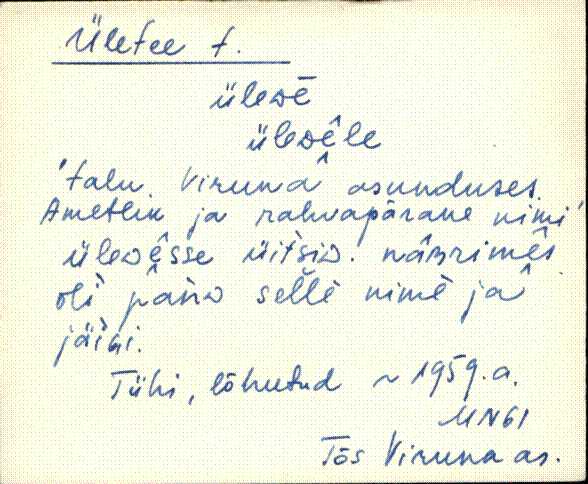 Ületee t.
üleɷē
üleɷêle
'talu Virunâ asunduses.
Ametlik ja rahvapärane nimi'
üleɷêsse üitsiɷ.
oli pâńɷ selle nimè jâ
jäi
Tühi, lõhutud ~ 1959.a.
MN61
Tõs Viruna as.